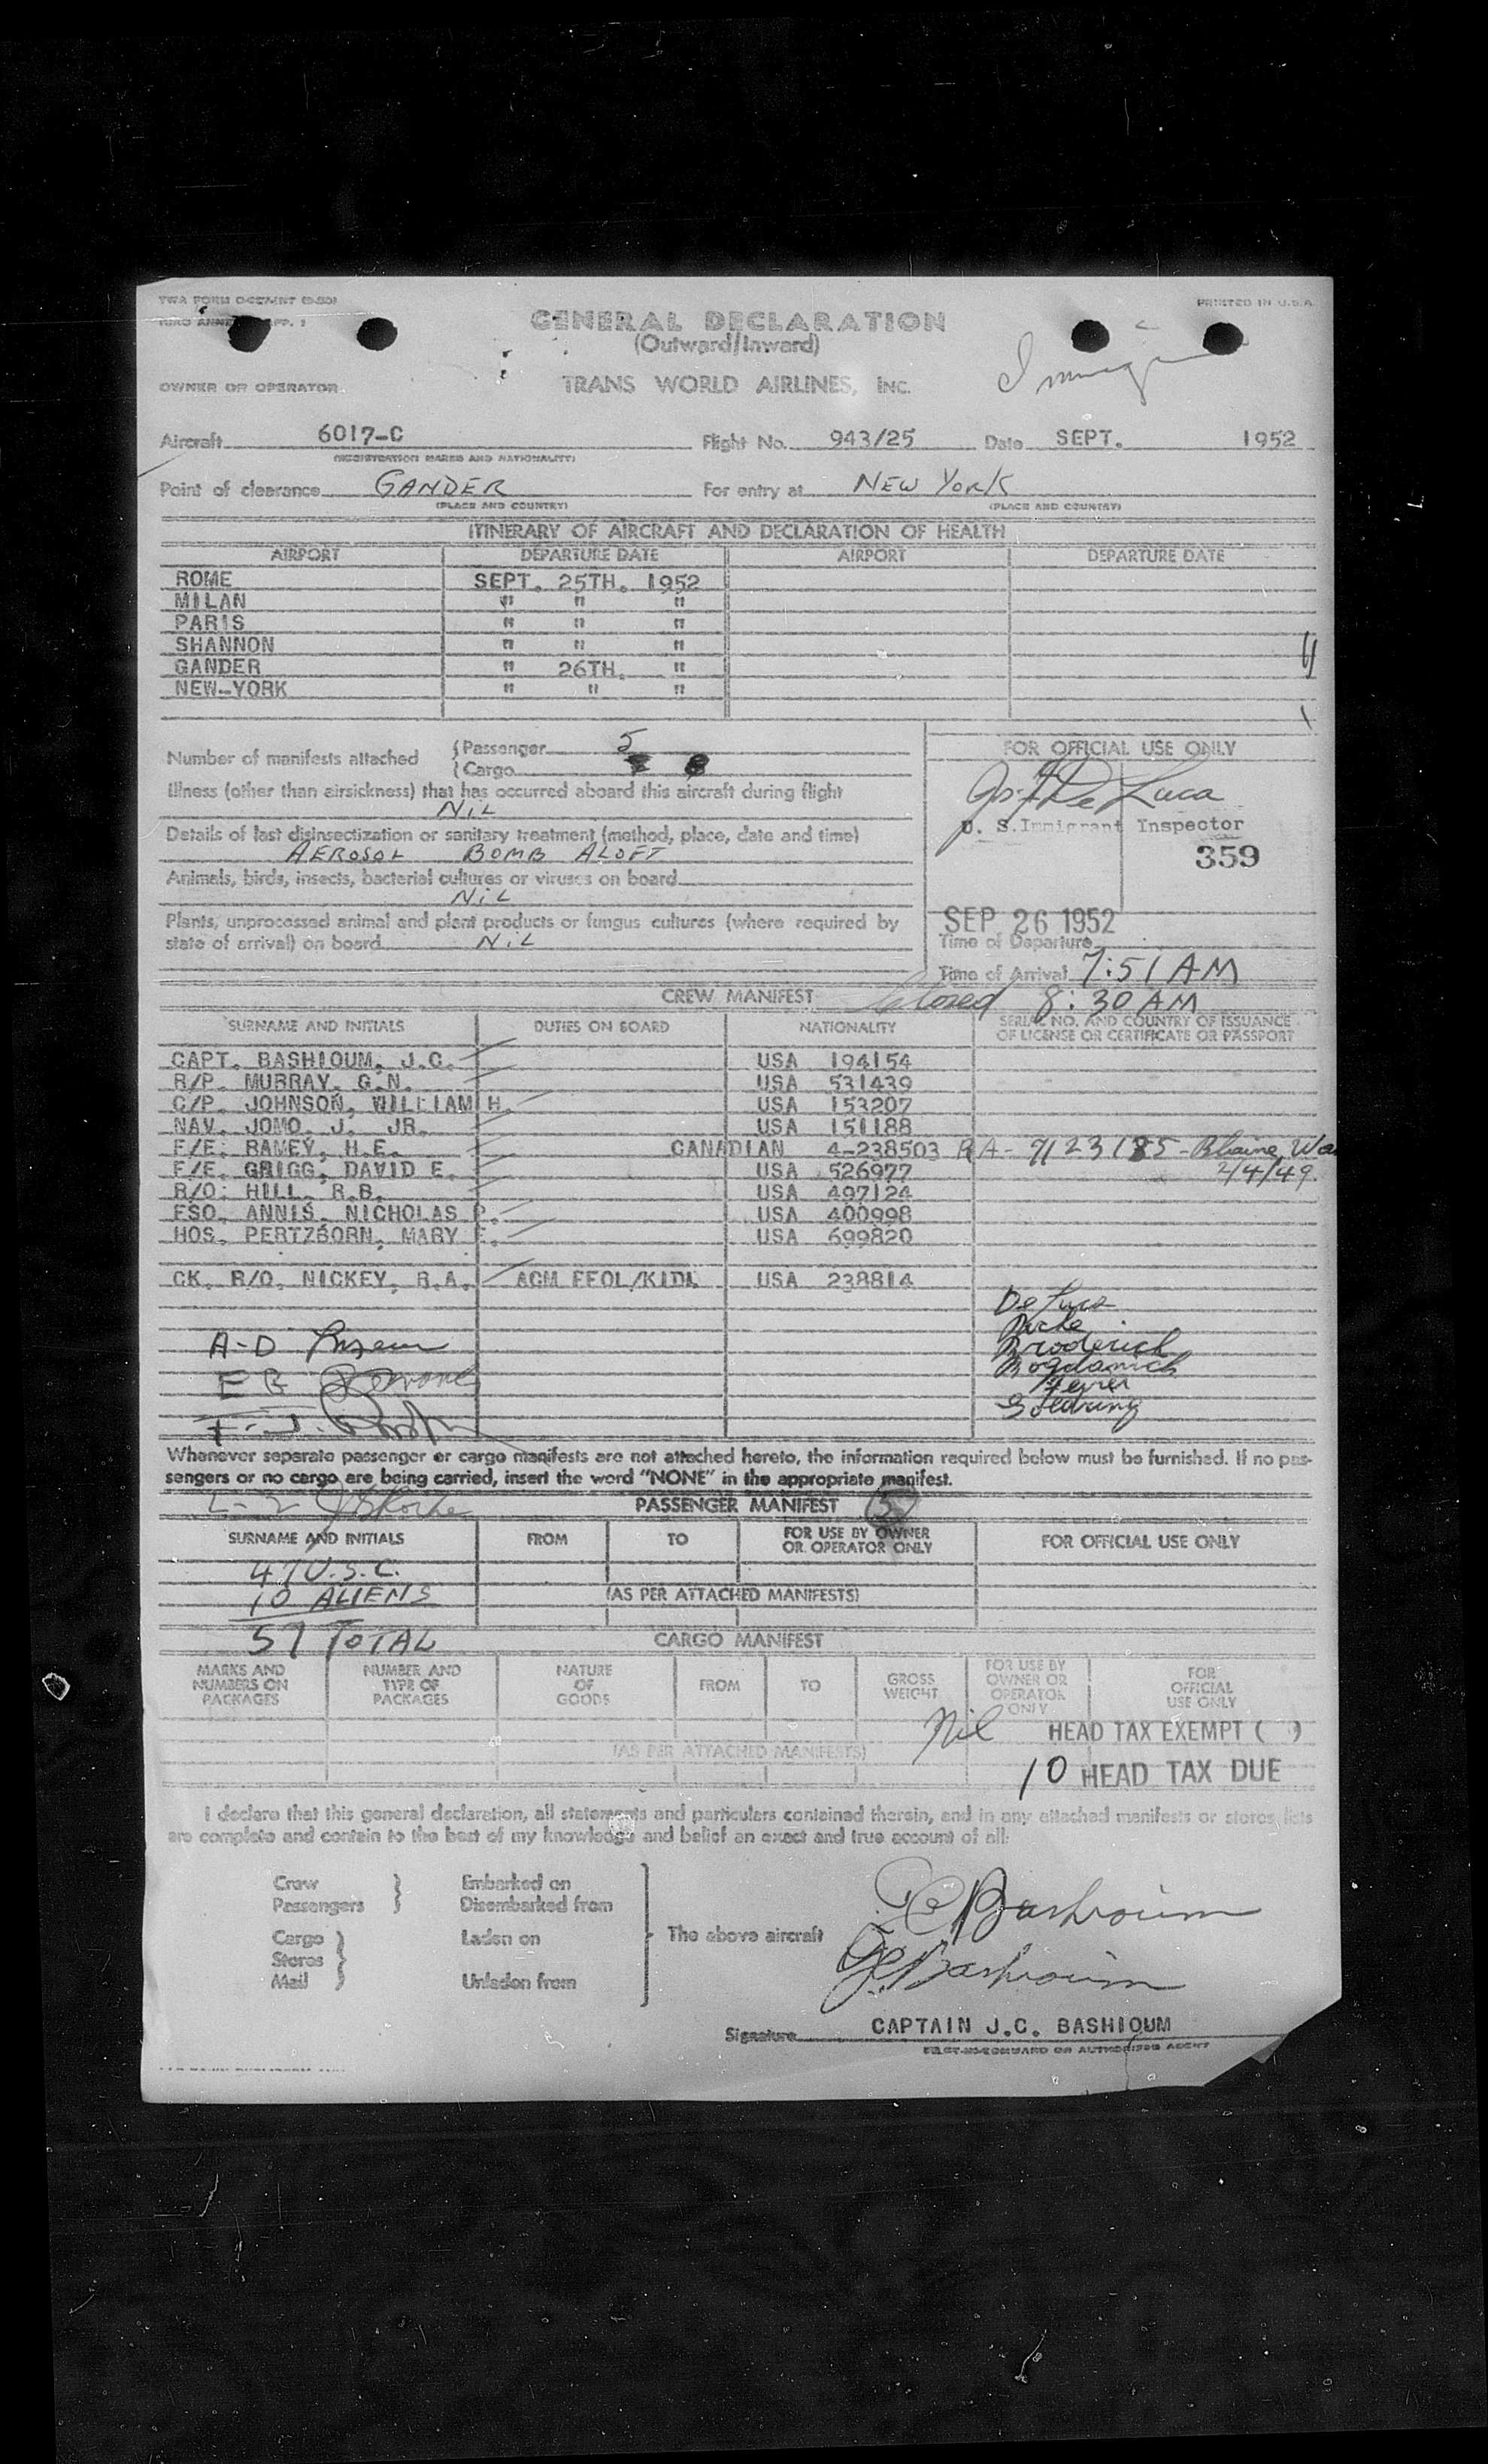 TWA FORM
PRINTED IN U.S.A.
GENERAL DECLARATION
(Outward/Inward)
OWNER OR OPERATOR TRANS WORLD AIRLINES, INC.
Aircraft 6017-C Flight No. 943/25 Date SEPT. 1952
(REGISTRATION MARKS AND NATIONALITY)
Point of clearance GANDER For entry at NEW YORK
(PLACE AND COUNTRY) (PLACE AND COUNTRY)
ITINERARY OF AIRCRAFT AND DECLARATION OF HEALTH
AIRPORT DEPARTURE DATE AIRPORT DEPARTURE DATE
ROME SEPT. 25TH. 1952
MILAN " " "
PARIS " " "
SHANNON " " "
GANDER " 26TH. "
NEW-YORK " " "
Number of manifests attached { Passenger 5
{ Cargo
Illness (other than airsickness) that has occurred aboard this aircraft during flight
NIL
Details of last disinsectization or sanitary treatment (method, place, date and time)
AEROSOL BOMB ALOFT
Animals, birds, insects, bacterial cultures or viruses on board
NIL
Plants, unprocessed animal and plant products or fungus cultures (where required by
state of arrival) on board NIL
FOR OFFICIAL USE ONLY
De Luca
U. S. Immigrant Inspector
359
SEP 26 1952
Time of Departure
Time of Arrival 7:51 AM
8:30 AM
CREW MANIFEST
SURNAME AND INITIALS DUTIES ON BOARD NATIONALITY SERIAL NO. AND COUNTRY OF ISSUANCE
OF LICENSE OR CERTIFICATE OR PASSPORT
CAPT. BASHIOUM, J.C. USA 194154
R/P. MURRAY, G.N. USA 531439
C/P. JOHNSON, WILLIAM H. USA 153207
NAV. JOMO, J. JR. USA 151188
F/E: RAMEY, H.E. CANADIAN 4-238503 RA- 7123185 - Blaine, Wa
F/E. GRIGG, DAVID E. USA 526977 2/4/49.
R/O: HILL, R.B. USA 497124
FSO. ANNIS, NICHOLAS P. USA 400998
HOS. PERTZBORN, MARY E. USA 699820
CK. R/O. NICKEY, R.A. ACM FEOL/KIDL USA 238814
De Luca
Broderick
Bogdanich
A-D
Whenever separate passenger or cargo manifests are not attached hereto, the information required below must be furnished. If no pas-
sengers or no cargo are being carried, insert the word "NONE" in the appropriate manifest.
PASSENGER MANIFEST 5
SURNAME AND INITIALS FROM TO FOR USE BY OWNER OR OPERATOR ONLY FOR OFFICIAL USE ONLY
47 U.S.C.
10 ALIENS (AS PER ATTACHED MANIFESTS)
57 TOTAL
CARGO MANIFEST
MARKS AND NUMBERS ON PACKAGES NUMBER AND TYPE OF PACKAGES NATURE OF GOODS FROM TO GROSS WEIGHT FOR USE BY OWNER OR OPERATOR ONLY FOR OFFICIAL USE ONLY
Nil HEAD TAX EXEMPT ( )
(AS PER ATTACHED MANIFESTS)
10 HEAD TAX DUE
I declare that this general declaration, all statements and particulars contained therein, and in any attached manifests or stores lists
are complete and contain to the best of my knowledge and belief an exact and true account of all:
Crew } Embarked on
Passengers } Disembarked from
Cargo } Laden on The above aircraft
Stores }
Mail } Unladen from
J C Bashioum
J C Bashioum
Signature CAPTAIN J.C. BASHIOUM
PILOT-IN-COMMAND OR AUTHORISED AGENT